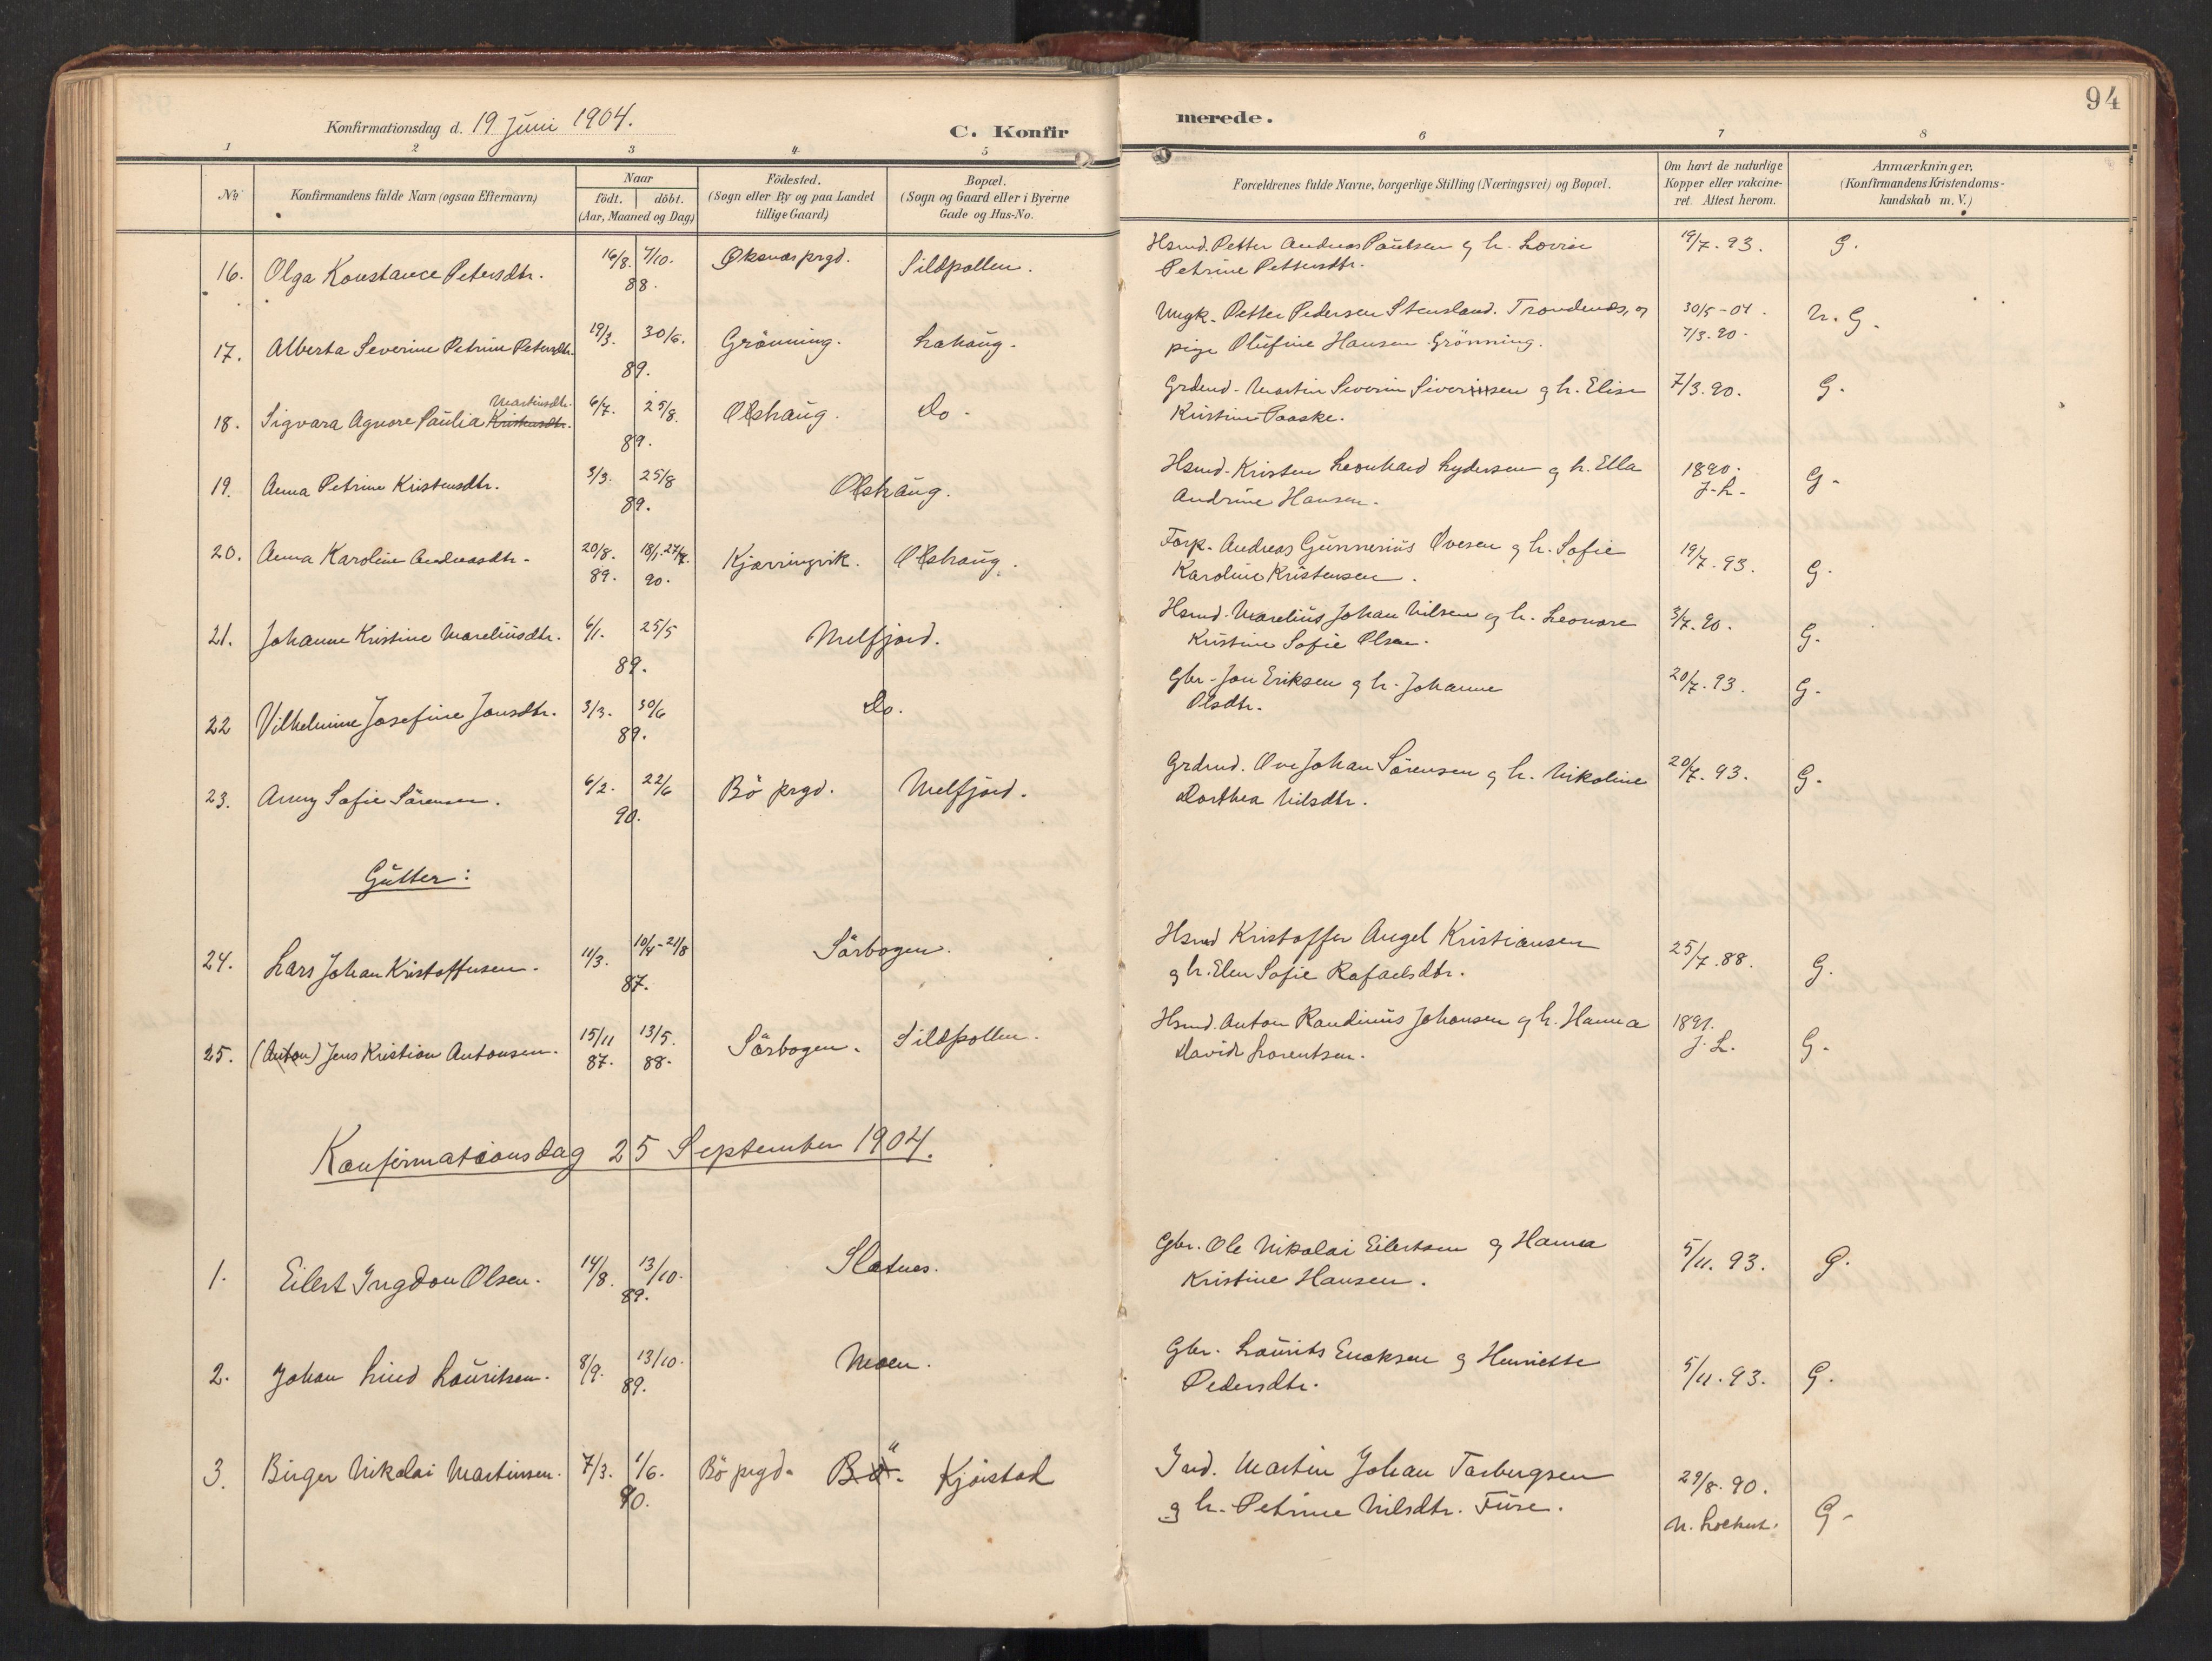 94
Konfirmationsdag d. 19 Juni 1904.
C. Konfirmerede.
1 2 3 4 5 6 7 8
No
Konfirmandens fulde Navn (ogsaa Efternavn)
Naar
födt. döbt.
(Aar, Maaned og Dag)
Födested.
(Sogn eller By og paa Landet
tillige Gaard)
Bopæl.
(Sogn og Gaard eller i Byerne
Gade og Hus-No.
Forældrenes fulde Navne, borgerlige Stilling (Næringsvei) og Bopæl.
Om havt de naturlige
Kopper eller vakcine-
ret. Attest herom.
Anmærkninger.
(Konfirmandens Kristendoms-
kundskab m. V.)
16. Olga Konstance Petersdtr. 16/8. 7/10. 88. Öksnæs prgd. Sildpollen. Hsmd. Petter Andreas Paulsen og h. Lovise
Petrine Pettersdtr. 19/7. 93. G.
17. Alberta Severine Petrine Petersdtr. 19/3. 30/6. 89. Grönning. Lahaug. Ungk. Petter Pedersen Stensland. Trondenæs, og
pige Olufine Hansen Grönning. 30/5-04. 7/3. 90. N. G.
18. Sigvara Agnore Paulia Kristensdtr. Martinsdtr. 6/7. 25/8. 89. Olshaug. Do. Grdmd. Martin Severin Siversen og h. Elise
Kristine Paaske. 7/3. 90. G.
19. Anna Petrine Kristensdtr. 3/3. 25/8 89. Olshaug. Hsmd. Kristen Leonhard Lydersen og h. Ella
Andrine Hansen. 1890. J. L. G.
20. Anna Karoline Andreasdtr. 20/8. 89. 18/1. 27/7. 90. Kjærringvik. Olshaug. Forp. Andreas Gunnerius Ovesen og h. Sofie
Karoline Kristensen. 19/7. 93. G.
21. Johanne Kristine Mareliusdtr. 6/1. 25/5 89. Melfjord. Hsmd. Marelius Johan Nilsen og h. Leonore
Kristine Sofie Olsen. 3/7. 90. G.
22 Vilhelmine Josefine Jonsdtr. 3/3. 30/6 89. Do. Gbr. Jon Eriksen og h. Johanne
Olsdtr. 20/7. 93. G.
23. Anny Sofie Sörensen. 6/2. 22/6 90. Bö prgd. Melfjord. Grdmd. Ove Johan Sörensen og h. Nikoline
Dorthea Nilsdtr. 20/7. 93. G.
Gutter:
24. Lars Johan Kristoffersen. 11/3. 10/4-21/8 87. Sörbogen. Hsmd Kristoffer Angel Kristiansen
og h. Elen Sofie Rafaelsdtr. 25/7. 88. G.
25. (Anton) Jens Kristian Antonsen. 15/11 87. 13/5. 88. Sörbogen. Sildpollen. Hsmd. Anton Randinius Johansen og h. Hanna
David Lorentsen. 1891. J. L. G.
Konfirmationsdag 25 September 1904.
1. Eilert Ingdon Olsen. 14/8. 13/10. 89. Slatnes. Gbr. Ole Nikolai Eilertsen og Hanna
Kristine Hansen. 5/11. 93. G.
2. Johan Lind Lauritsen. 8/9. 13/10. 89. Moen. Gbr. Laurits Enoksen og Henriette
Pedersdtr. 5/11. 93. G.
3. Birger Nikolai Martinsen. 7/3. 1/6. 90. Bö prgd. Bö. Kjörstad Ind. Martin Johan Torbergsen
og h. Petrine Nilsdtr. Fure. 29/8. 90. N. Lochert. G.